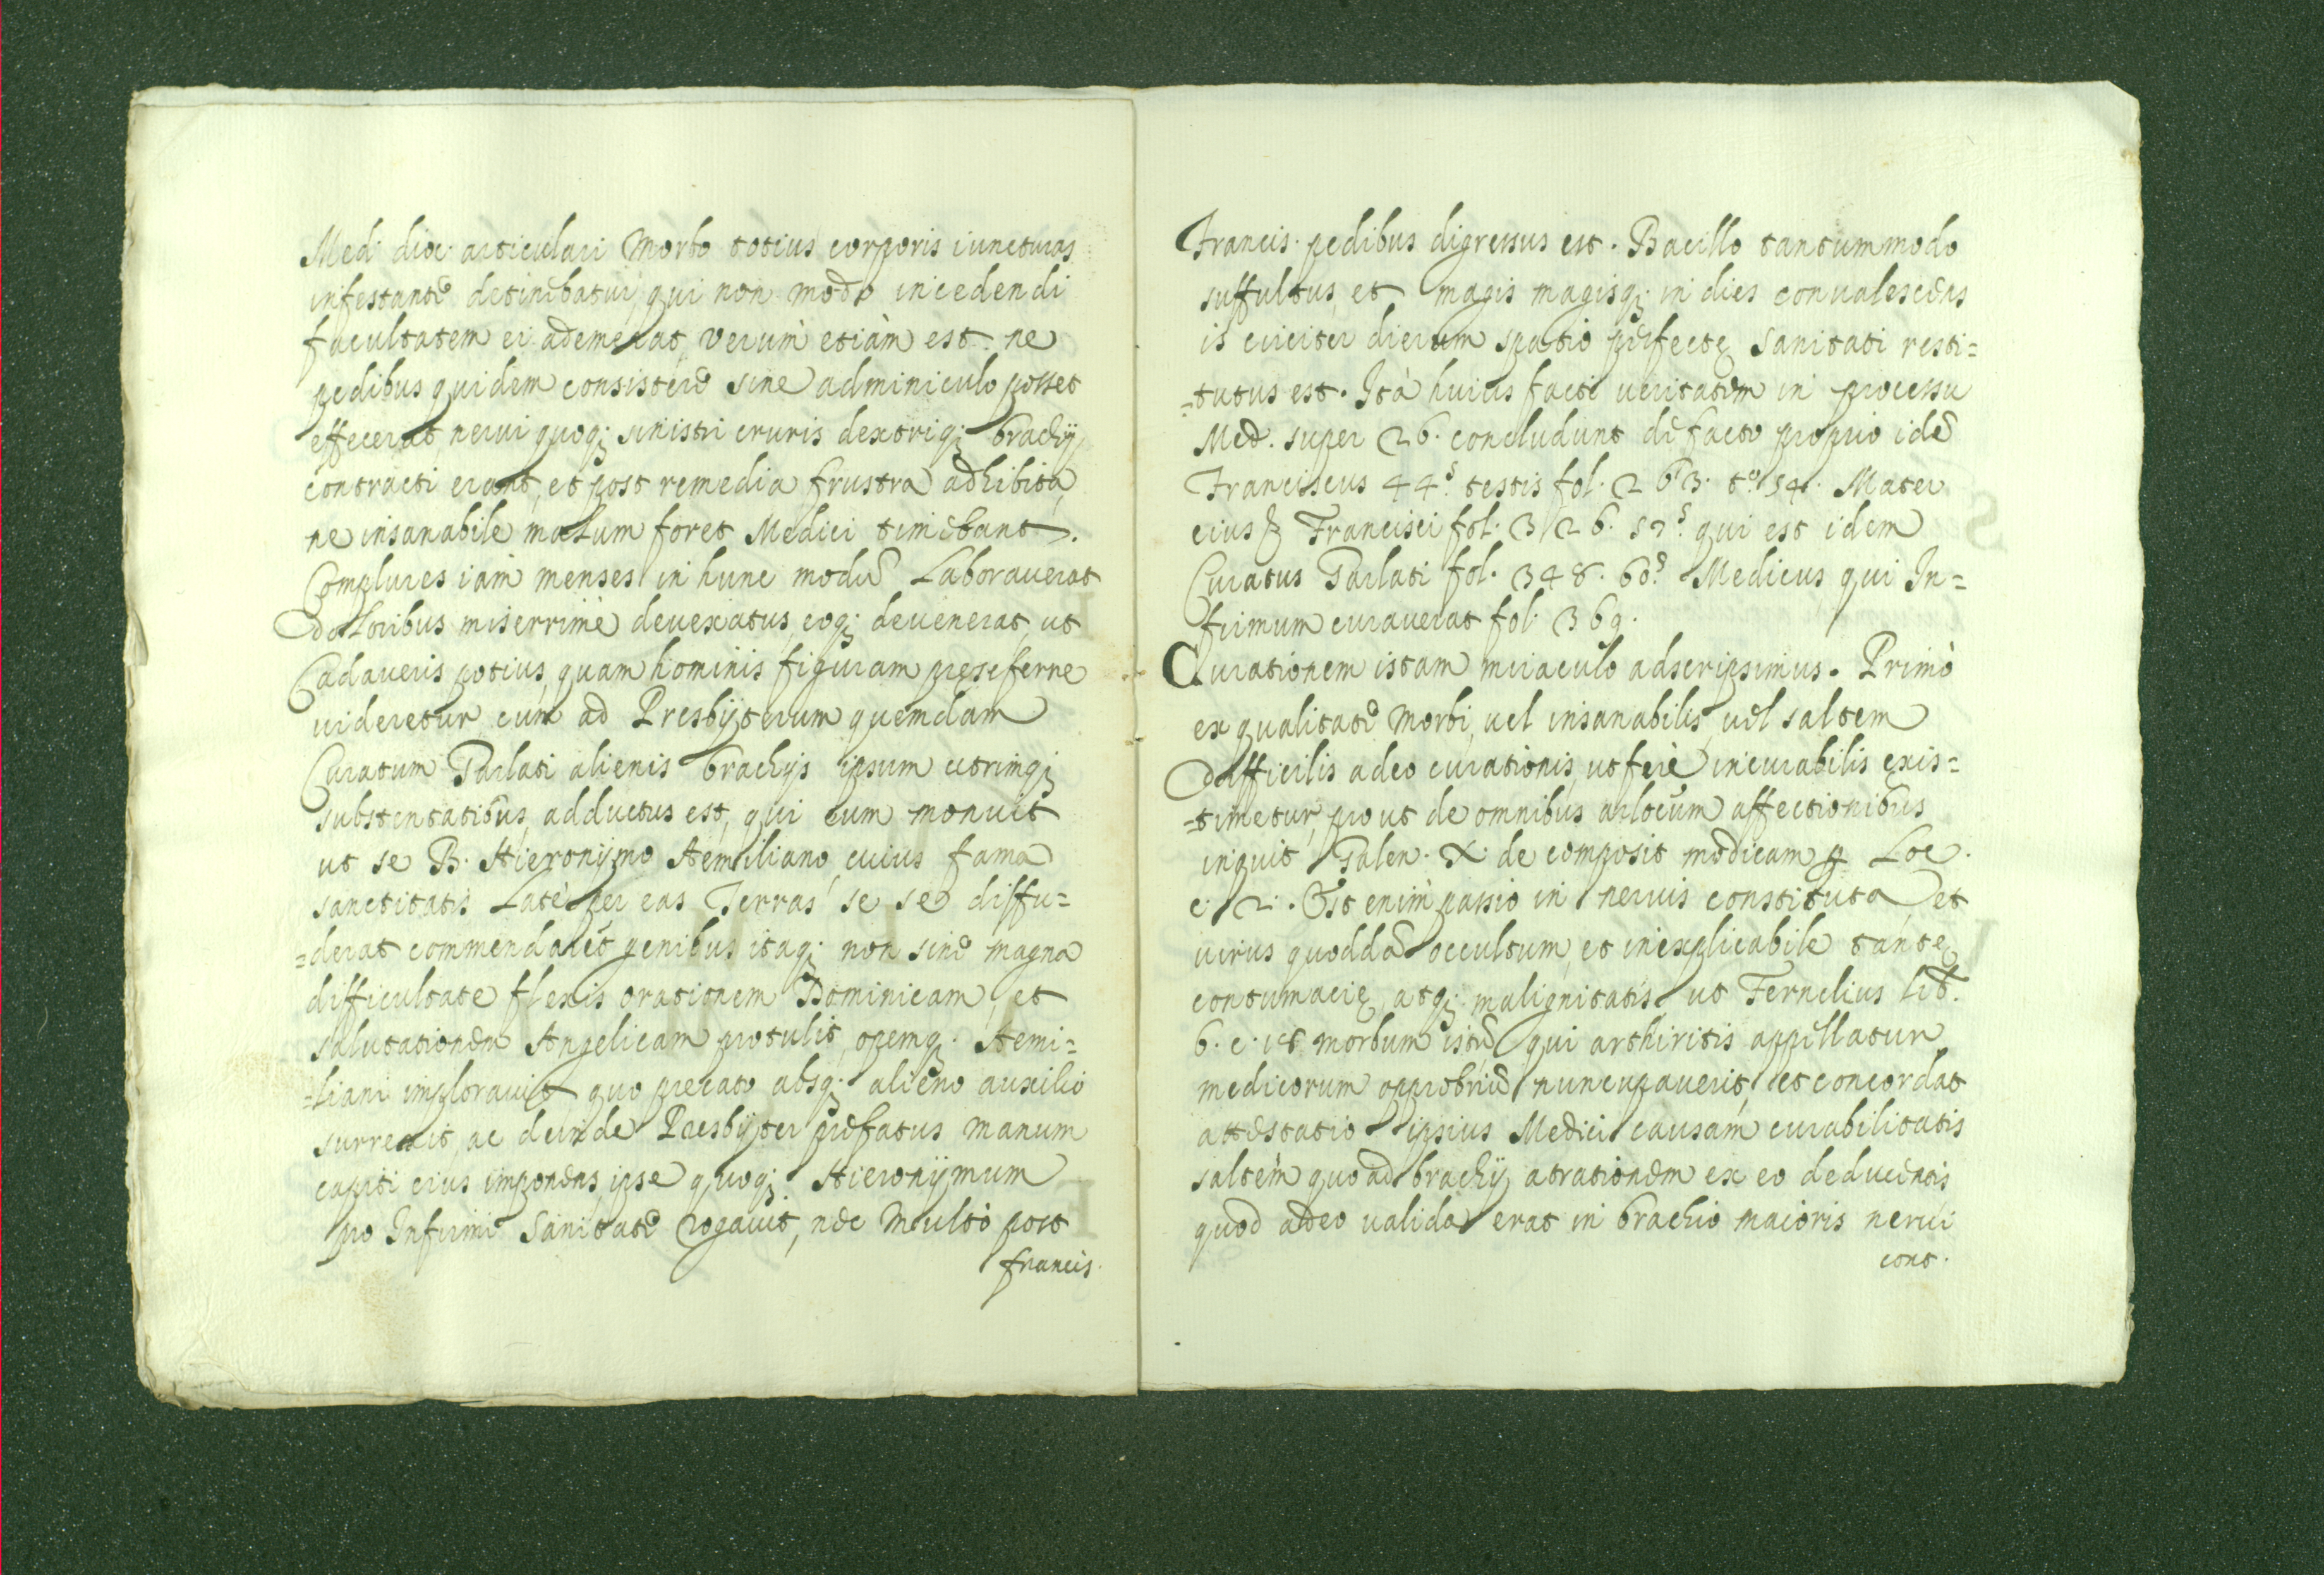 Med. dioc. articulari Morbo totius corporis iuncturas
infestante detinebatur, qui non modo incedendi
facultatem ei ademerat, verum etiàm est ne
pedibus quidem consistere sine adminiculo posset
effecerat, nervi quoq; sinistri cruris dextriq; brachij
contracti erant, et post remedia frustra adhibita,
ne insanabile malum foret Medici timebant.
Complures iam menses in hunc modũ Laboraverat
doloribus miserrimè devexatus, eoq; devenerat, ut
Cadaveris potius, quam hominis figuram preseferre
videretur cum ad Presbyterum quemdam
Curatum Parlati alienis brachijs ipsum utrimq;
substentatibus, adductus est, qui eum monuit
ut se B. Hieronijmo Aemiliano, cuius fama
sanctitatis Latè per eas Terras se se diffu=
=derat commendaret genibus itaq; non sine magna
difficultate flexis orationem Dominicam, et
salutationem Angelicam protulit, opemq; Aemi=
=liani imploravit, quo precato absq; alieno auxilio
surrexit, ac deinde Presbijter prefatus manum
capiti eius imponens, ipse quoq; Hieronijmum
pro Infirmi Sanitate rogavit, nec Multò post
francis.
Francis. pedibus digressus est. Bacillo tantummodo
suffultus, et magis magisq; in dies convalescens
is circiter dierum spatio perfectę Sanitati resti=
=tutus est. Ità huius facti veritatem in processu
Med. super 26. concludunt de facto proprio idẽ
Franciscus 44.s testis fol. 263. to 54. Mater
eius Francisci fol. 326. 57.s qui est idem
Curatus Parlati fol. 348. 60.s Medicus qui In=
firmum curaverat fol. 369.
Curationem istam miraculo adscripsimus. Primò
ex qualitate Morbi, vel insanabilis, vel saltem
difficilis adeo curationis, ut ferè incurabilis exis=
=timetur, prout de omnibus artocum affectionibus
inquit Galen. X. de composit medicam Loc.
c. 2. Est enim passio in nervis constituta, et
virus quoddã occultum, et inexplicabile tantę
contumacię, atq; malignitatis ut Fernelius lib.
6. c. 18 morbum istũ qui arthiritis appellatur
medicorum opprobriũ nuncupaverit, et concordat
attestatio ipsius Medici causam curabilitatis
saltem quo ad brachij atrationem ex eo deducentis
quod adeo valida erat in brachio maioris nervi
cont.